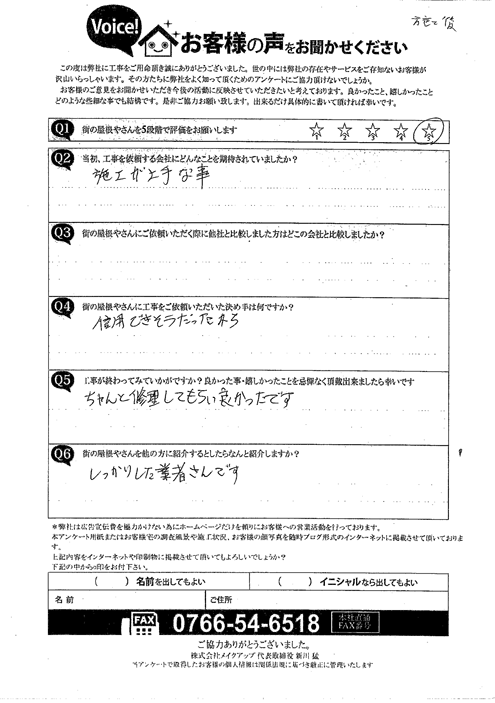 Voice!
お客様の声をお聞かせください
施工後
この度は弊社に工事をご用命頂き誠にありがとうございました。世の中には弊社の存在やサービスをご存知ないお客様が
沢山いらっしゃいます。その方たちに弊社をよく知って頂くためのアンケートにご協力頂けないでしょうか。
お客様のご意見をお聞かせいただき今後の活動に反映させていただきたいと考えております。良かったこと、嬉しかったこと
どのような些細な事でも結構です。是非ご協力お願い致します。出来るだけ具体的に書いて頂ければ幸いです。
Q1 街の屋根やさんを5段階で評価をお願いします
1 2 3 4 5
Q2 当初、工事を依頼する会社にどんなことを期待されていましたか?
施工が上手な事
Q3 街の屋根やさんにご依頼いただく際に他社と比較しました方はどこの会社と比較しましたか?
Q4 街の屋根やさんに工事をご依頼いただいた決め手は何ですか?
信用できそうだったから
Q5 工事が終わってみていかがですか?良かった事・嬉しかったことを忌憚なく頂戴出来ましたら幸いです
ちゃんと修理してもらい良かったです
Q6 街の屋根やさんを他の方に紹介するとしたらなんと紹介しますか?
しっかりした業者さんです
*弊社は広告宣伝費を極力かけない為にホームページだけを頼りにお客様への営業活動を行っております。
本アンケート用紙またはお客様宅の調査風景や施工状況、お客様の顔写真を随時ブログ形式のインターネットに掲載させて頂いております。
上記内容をインターネットや印刷物に掲載させて頂いてもよろしいでしょうか?
下記の中から○印をお付下さい。
( ) 名前を出してもよい ( ) イニシャルなら出してもよい
名前 ご住所
FAX 0766-54-6518 本社直通 FAX番号
ご協力ありがとうございました。
株式会社メイクアップ 代表取締役 新川 猛
当アンケートで取得したお客様の個人情報は関係法規に基づき厳正に管理いたします